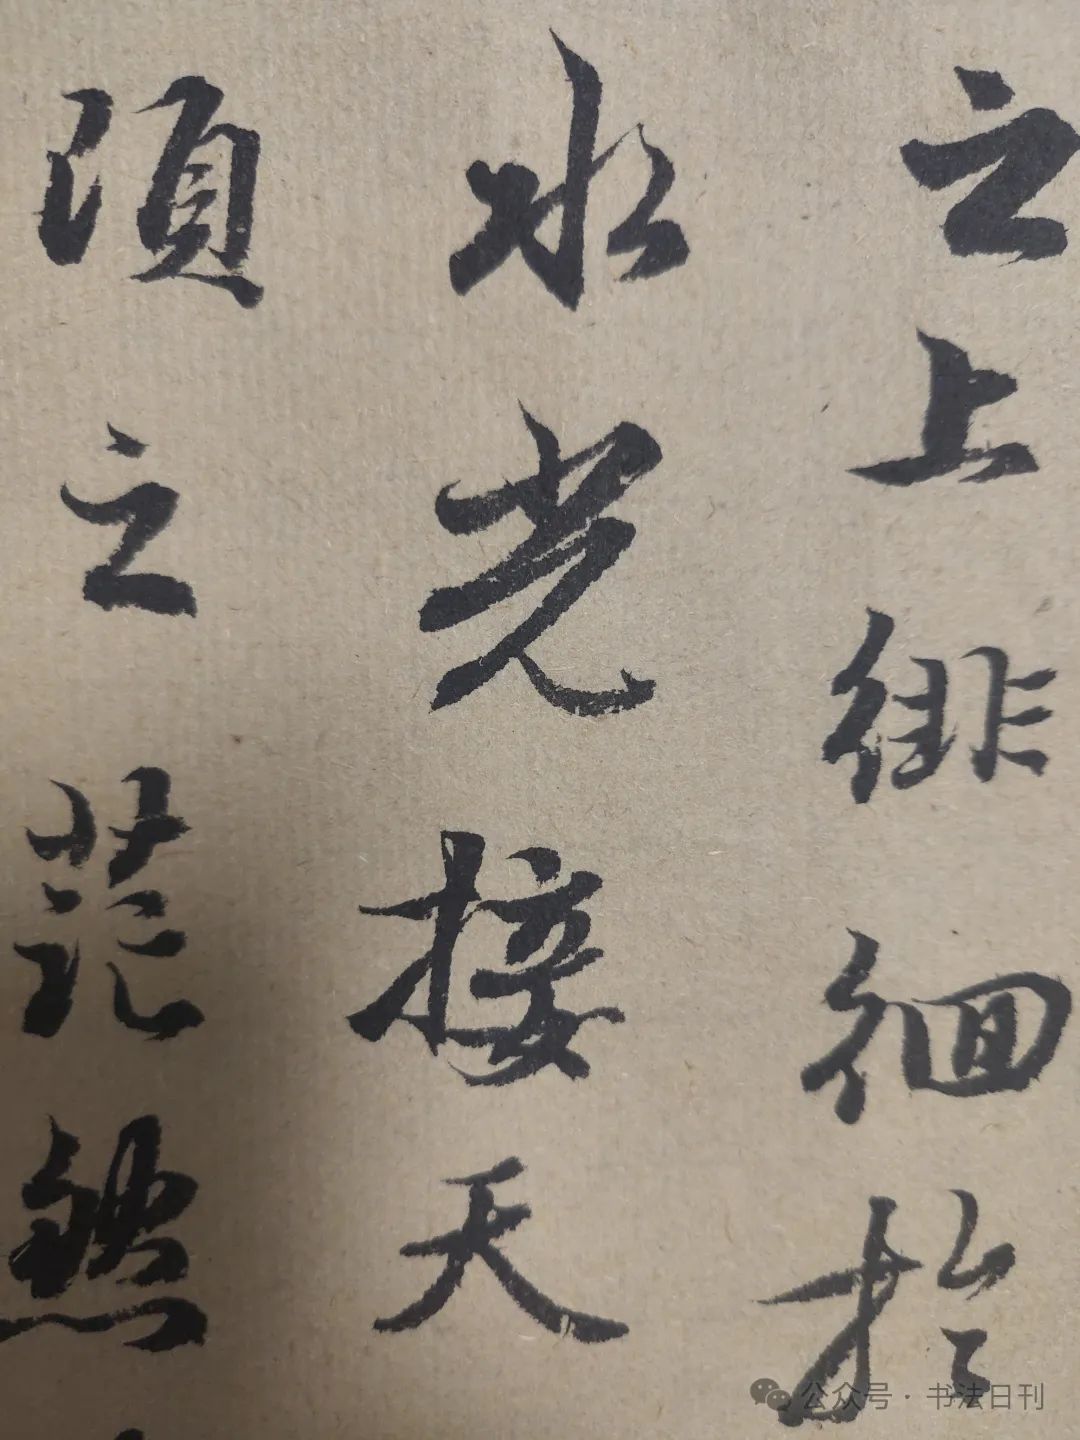 之上徘徊於
水光接天
頃之茫然
公众号·书法日刊